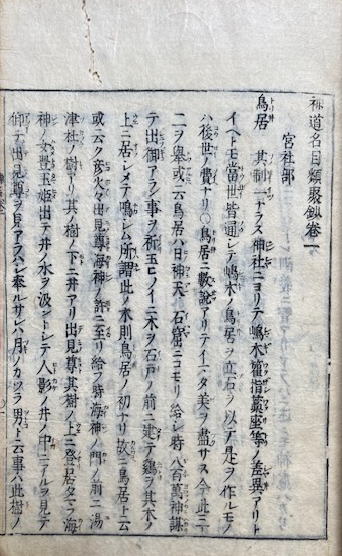 神道名目類聚鈔卷一
宮社部
鳥居 其制一ナラス神社ニヨリテ嶋木指藁座等ノ差異アリト
イヘトモ當世皆通シテ嶋木ノ鳥居ヲ立石ヲ以テ是ヲ作ルモノ
ハ後世ノ費ナリ○鳥居ニ數說アリテイマタ美ヲ盡サス今此ニ一
二ヲ舉或云鳥居ハ日神天ノ石窟ニコモリ給シ時八百萬神謀
テ出御アラン事ヲ祈玉ヒ木ヲ石戸ノ前ニ建テ鷄ヲ其木ノ
上ニ居シメテ鳴シム所謂此ノ木則鳥居ノ初ナリ故ニ鳥居ト云
或云彦火々出見尊海神ノ許ニ至リ給フ時海神ノ門ノ前ニ湯
津杜ノ樹アリ其樹ノ下ニ井アリ出見尊其樹ノ上ニ登居タマフ海
神ノ女豊玉姫出テ井ノ水ヲ汲ントシテ人影ノ井ノ中ニアルヲ見テ
仰テ出見尊ヲ見アラハシ奉ルサレハ月ノカツラ男ト云事ハ此樹ノ